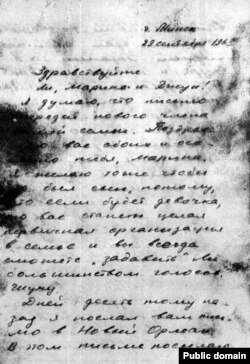 г. Минск
29 сентября 196
Здравствуйте
ли, Марина и
Я думаю, что письмо
нового члена
семьи. Поздрав
вас обоих и осо
но тебя, Марина.
Я желаю тоже чтобы
был сын, потому,
что если будет девочка,
у вас станет целая
организация
в семье и вы всегда
сможете "задавить" Ли
большинством голосов.
Шучу.
Дней десять тому на-
зад я послал вам пись-
мо в Новый Орлеан.
В том письме посылаю
Public domain